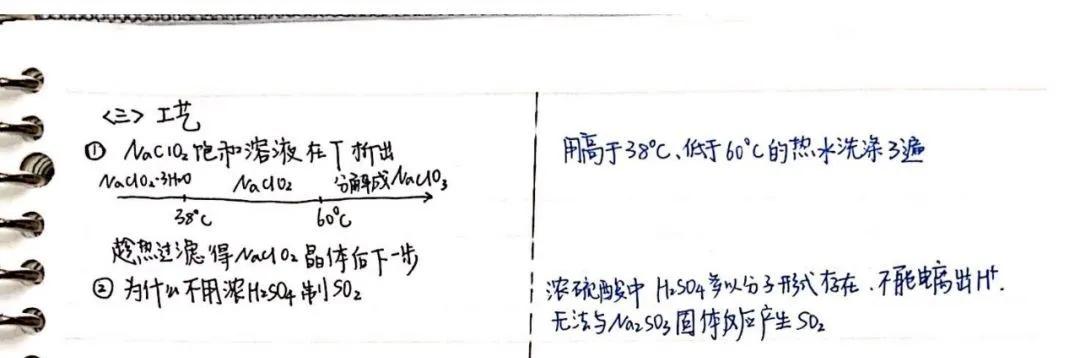 <三> 工艺
① NaClO₂饱和溶液在T析出
NaClO₂·3H₂O NaClO₂ 分解成NaClO₃
38°C 60°C
趁热过滤得NaClO₂晶体后下一步
② 为什么不用浓H₂SO₄制SO₂
用高于38°C、低于60°C的热水洗涤3遍
浓硫酸中H₂SO₄多以分子形式存在.不能电离出H⁺.
无法与Na₂SO₃固体反应产生SO₂